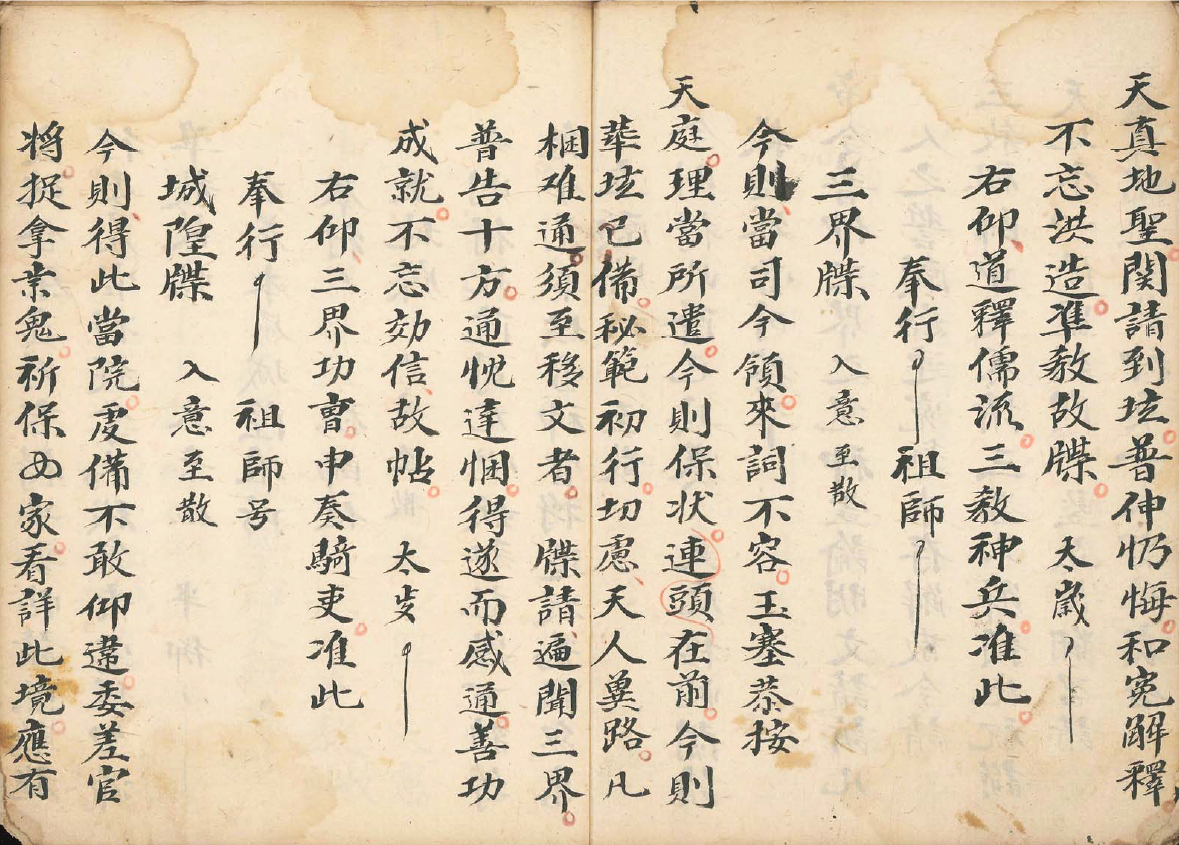 天真地聖関請到坛普伸忏悔和寃解釋
不忘洪造準教故牒　太歲
右仰道釋儒流三教神兵准此
奉行　祖師
三界牒　入意至散
今則當司今領來詞不容玉塞恭按
天庭理當所遣今則保状連頭在前今則
華坛已備秘範初行切慮天人異路凡
梱难通須至移文者牒請遍聞三界
普告十方通忱達悃得遂而感通善功
成就不忘効信故帖　太岁
右仰三界功曹申奏騎吏准此
奉行　祖師号
城隍牒　入意至散
今則得此當院虔備不敢仰違委差官
将捉拿業鬼祈保　家看詳此境應有